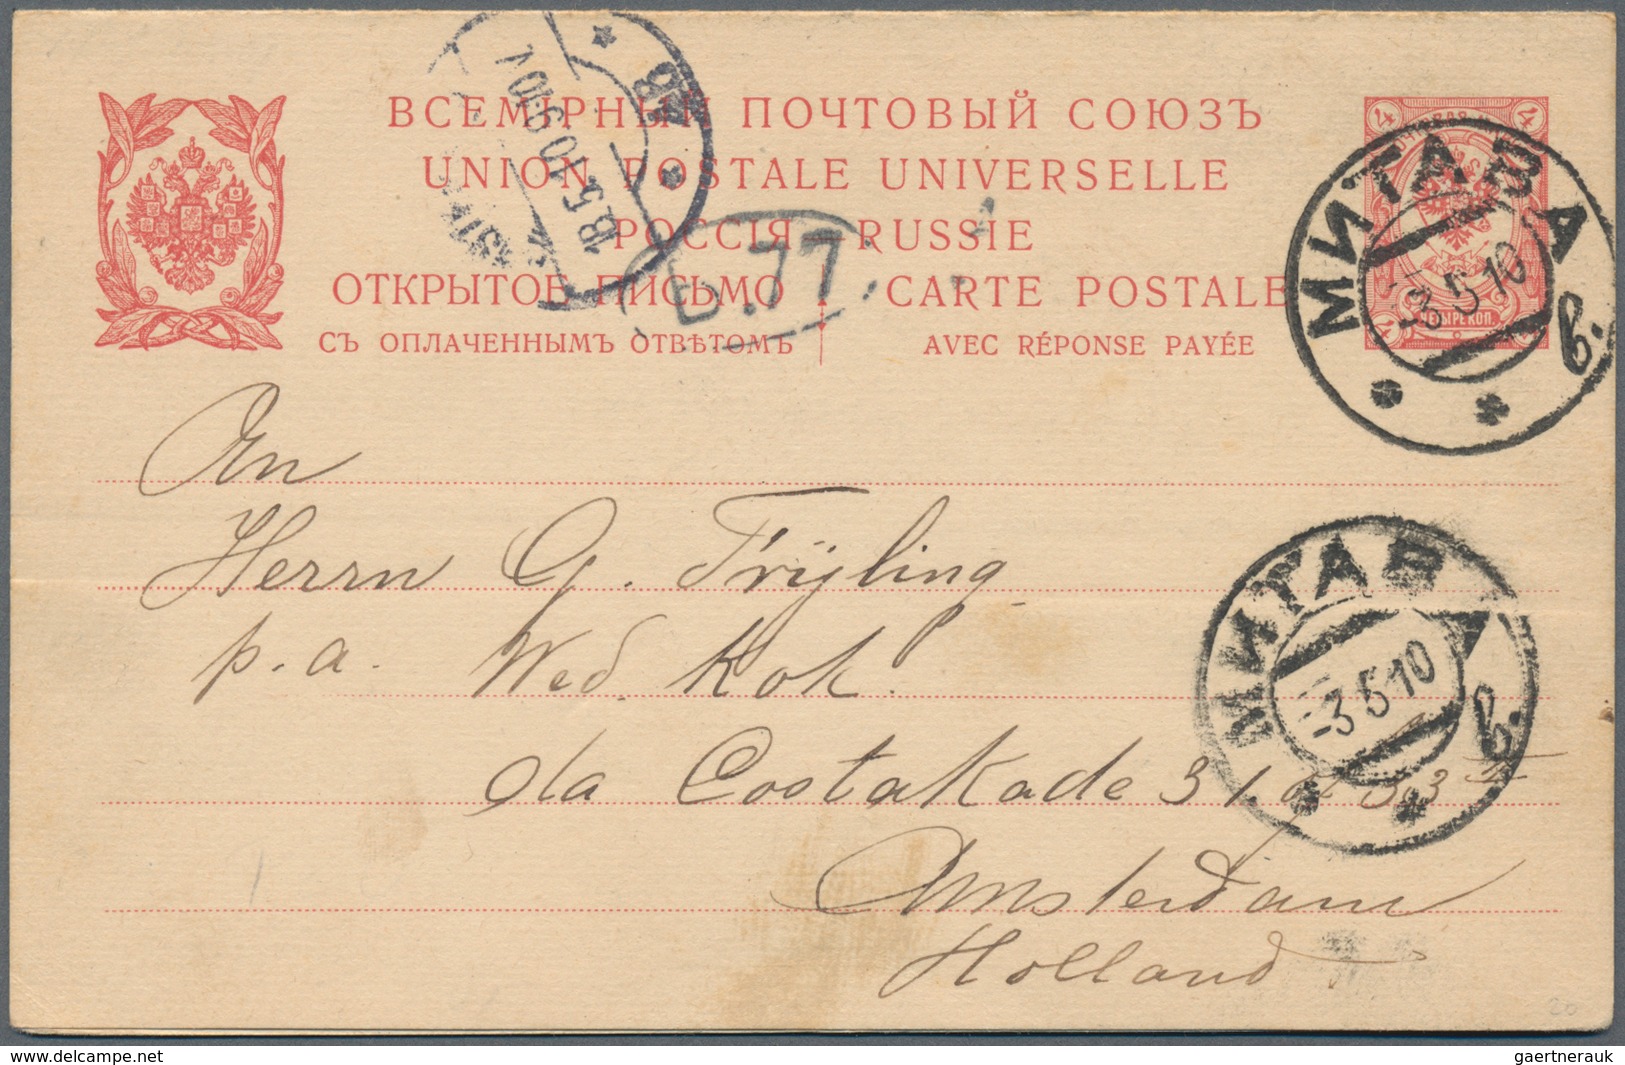 ВСЕМІРНЫЙ ПОЧТОВЫЙ СОЮЗЪ
UNION POSTALE UNIVERSELLE
РОССІЯ RUSSIE
ОТКРЫТОЕ ПИСЬМО CARTE POSTALE
СЪ ОПЛАЧЕННЫМЪ ОТВѢТОМЪ AVEC RÉPONSE PAYÉE
18.5.10 9-10V
Б.77.
4 4
ЧЕТЫРЕ КОП.
МИТАВА в.
-3 5 10
An
Herrn G. Frijling
p. a. Wed. Kok.
da Costakade 31
Amsterdam
Holland
МИТАВА в.
-3 5 10
20
delcampe.net
gaertnerauk